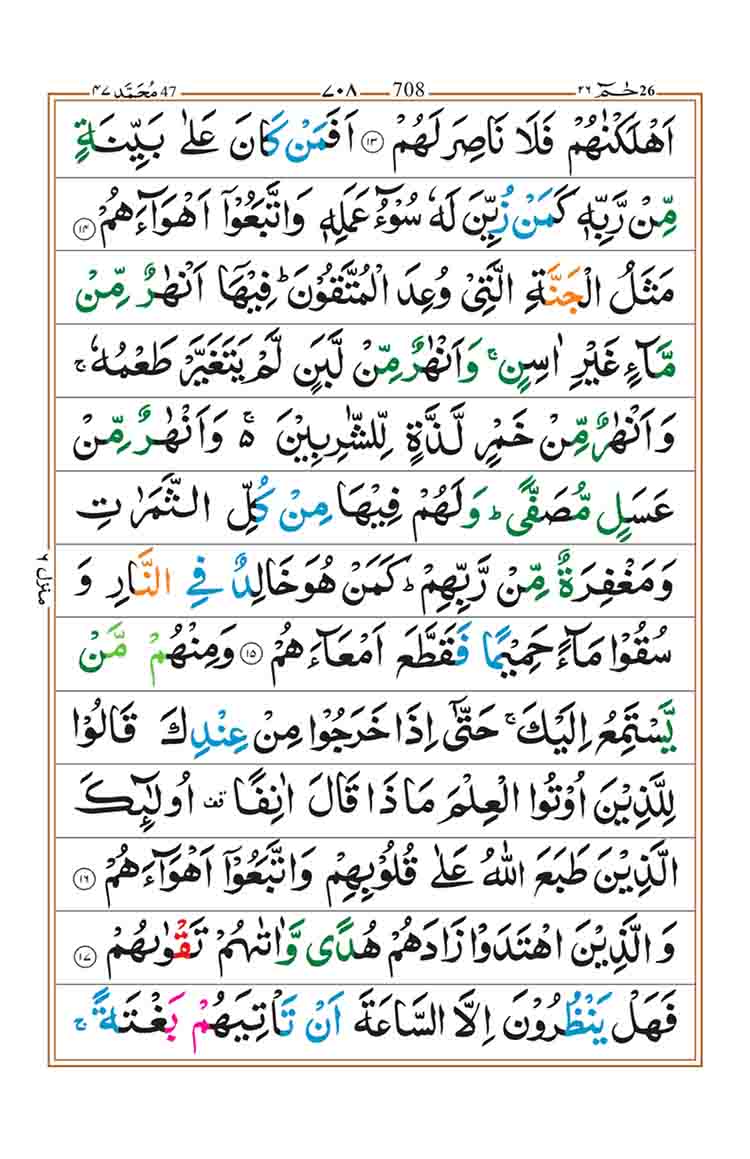 26 حٰمٓ ٢٦ 708 ٧٠٨ 47 مُحَمَّد ٤٧
اَهْلَكْنٰهُمْ فَلَا نَاصِرَ لَهُمْ ۝۱۳ اَفَمَنْ كَانَ عَلٰى بَيِّنَةٍ
مِّنْ رَّبِّهٖ كَمَنْ زُيِّنَ لَهٗ سُوْٓءُ عَمَلِهٖ وَاتَّبَعُوْٓا اَهْوَآءَهُمْ ۝۱۴
مَثَلُ الْجَنَّةِ الَّتِيْ وُعِدَ الْمُتَّقُوْنَ ؕ فِيْهَآ اَنْهٰرٌ مِّنْ
مَّآءٍ غَيْرِ اٰسِنٍ ۚ وَاَنْهٰرٌ مِّنْ لَّبَنٍ لَّمْ يَتَغَيَّرْ طَعْمُهٗ ۚ
وَاَنْهٰرٌ مِّنْ خَمْرٍ لَّذَّةٍ لِّلشّٰرِبِيْنَ ۚ۬ وَاَنْهٰرٌ مِّنْ
عَسَلٍ مُّصَفًّى ؕ وَلَهُمْ فِيْهَا مِنْ كُلِّ الثَّمَرٰتِ
وَمَغْفِرَةٌ مِّنْ رَّبِّهِمْ ؕ كَمَنْ هُوَ خَالِدٌ فِي النَّارِ وَ
سُقُوْا مَآءً حَمِيْمًا فَقَطَّعَ اَمْعَآءَهُمْ ۝۱۵ وَمِنْهُمْ مَّنْ
يَّسْتَمِعُ اِلَيْكَ ۚ حَتّٰٓى اِذَا خَرَجُوْا مِنْ عِنْدِكَ قَالُوْا
لِلَّذِيْنَ اُوْتُوا الْعِلْمَ مَاذَا قَالَ اٰنِفًا قف اُولٰٓئِكَ
الَّذِيْنَ طَبَعَ اللّٰهُ عَلٰى قُلُوْبِهِمْ وَاتَّبَعُوْٓا اَهْوَآءَهُمْ ۝۱۶
وَالَّذِيْنَ اهْتَدَوْا زَادَهُمْ هُدًى وَّاٰتٰىهُمْ تَقْوٰىهُمْ ۝۱۷
فَهَلْ يَنْظُرُوْنَ اِلَّا السَّاعَةَ اَنْ تَاْتِيَهُمْ بَغْتَةً ۚ
منزل ٦